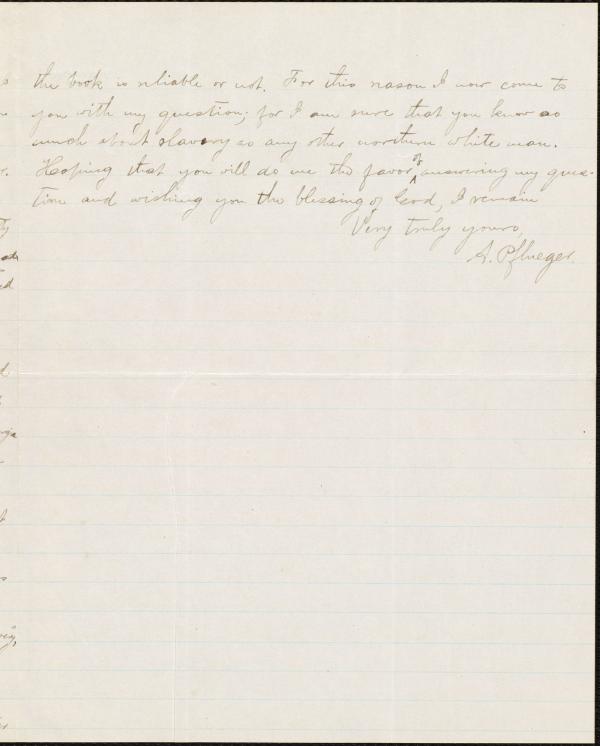 the book is reliable or not. For this reason I now come to
you with my question; for I am sure that you know as
much about slavery as any other northern white man.
Hoping that you will do me the favor of answering my ques-
tion and wishing you the blessing of God, I remain
Very truly yours,
A. Pflueger.